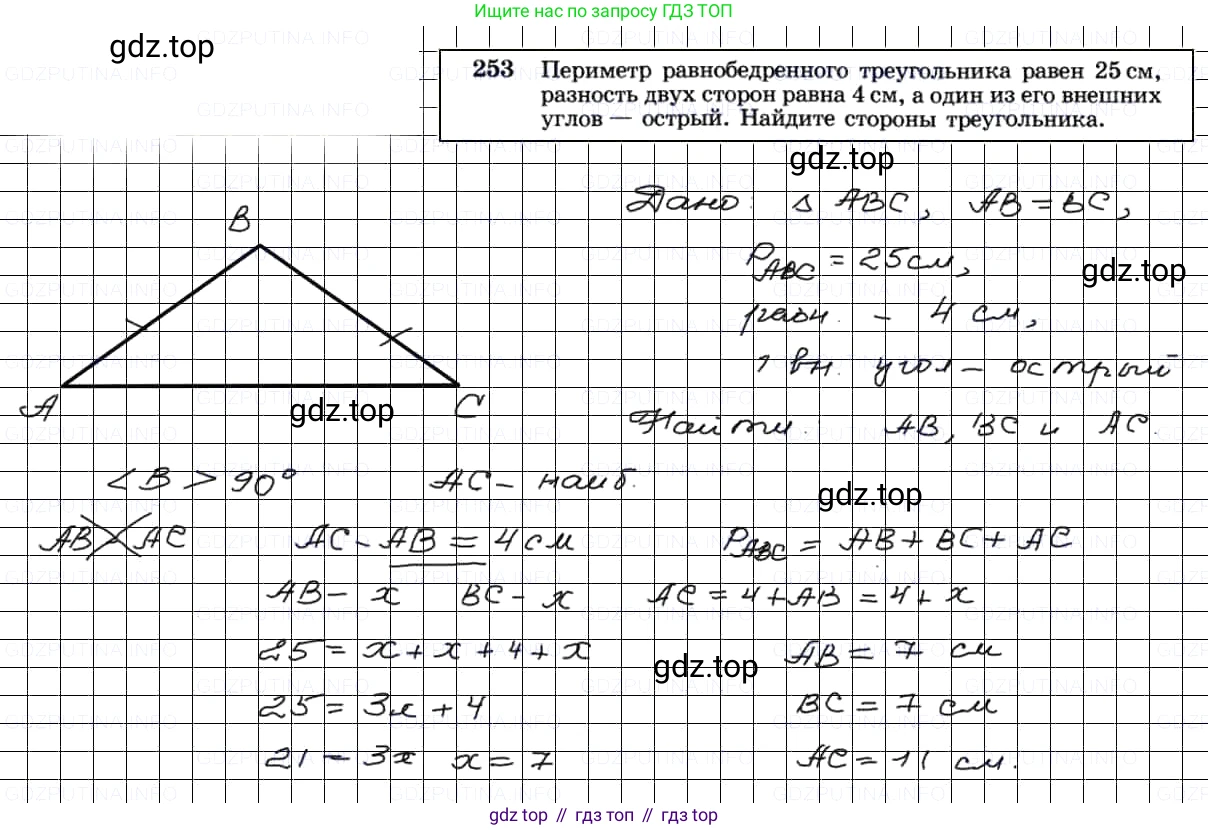 Ищите нас по запросу ГДЗ ТОП
gdz.top
253 Периметр равнобедренного треугольника равен 25 см,
разность двух сторон равна 4 см, а один из его внешних
углов — острый. Найдите стороны треугольника.
gdz.top
Дано: △ ABC, AB = BC,
P ABC = 25 см,
gdz.top
разн. - 4 см,
1 вн. угол - острый
Найти: AB, BC и AC.
B
A
C
gdz.top
<B > 90° AC - наиб.
gdz.top
AB AC AC - AB = 4 см P ABC = AB + BC + AC
AB - x BC - x AC = 4 + AB = 4 + x
25 = x + x + 4 + x AB = 7 см
gdz.top
25 = 3x + 4 BC = 7 см
21 = 3x x = 7 AC = 11 см.
gdz top // гдз топ // gdz top
GDZPUTINA.INFO